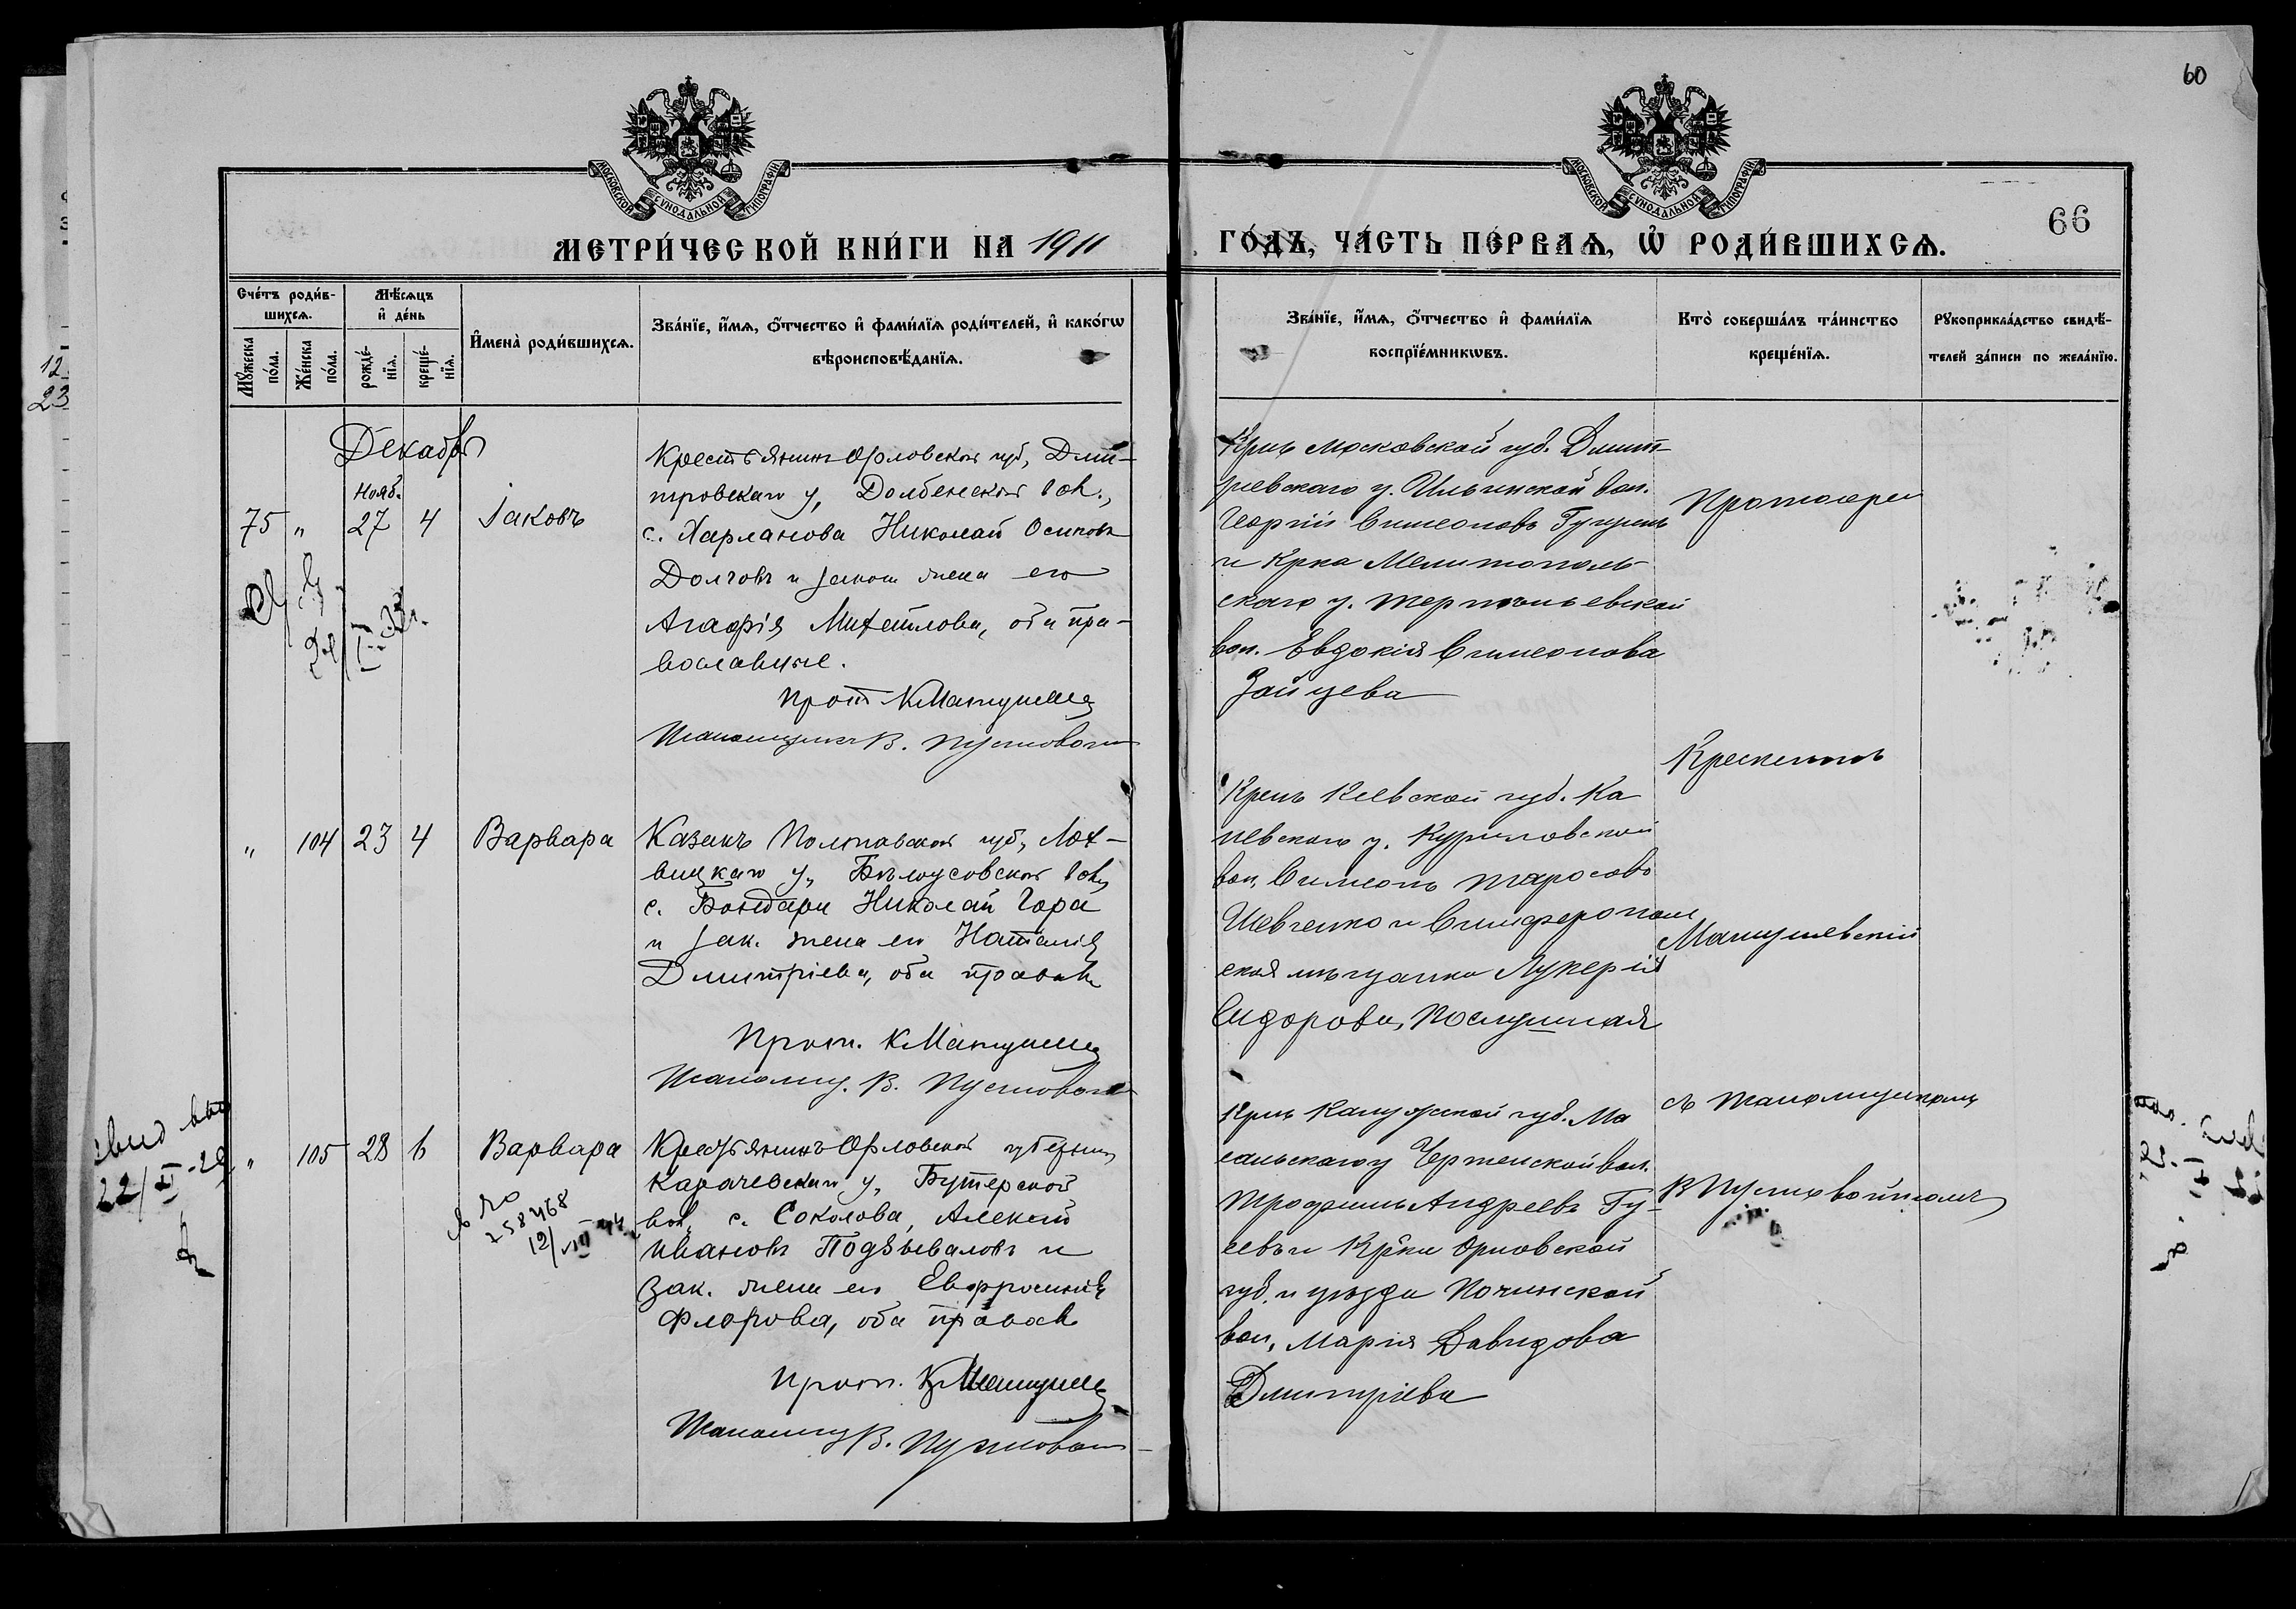 60
66
МОСКОВСКОЙ СѴНОДАЛЬНОЙ ТИПОГРАФІИ
МОСКОВСКОЙ СѴНОДАЛЬНОЙ ТИПОГРАФІИ
МЕТРИ́ЧЕСКОЙ КНИ́ГИ НА 1911
ГО́ДЪ, ЧА́СТЬ ПЕ́РВАѦ, Ѽ РОДИ́ВШИХСѦ.
Сче́тъ роди́в-
шихсѧ.
Мꙋ́жеска по́ла.
Же́нска по́ла.
Мѣ́сѧцъ
и҆ де́нь
рожде́-
нїѧ.
креще́-
нїѧ.
И҆мена̀ роди́вшихсѧ.
Зва́нїе, и҆́мѧ, ѻ҆́тчество и҆ фами́лїѧ роди́телей, и҆ како́гѡ
вѣроисповѣ́данїѧ.
Зва́нїе, и҆́мѧ, ѻ҆́тчество и҆ фами́лїѧ
воспрїе́мникѡвъ.
Кто̀ соверша́лъ та́инство
креще́нїѧ.
Рꙋкоприкла́дство свидѣ́-
телей за́писи по жела́нїю.
12
23
Декабрь
Нояб.
75 " 27 4 Іаковъ
Крестьянинъ Орловской губ, Дми-
тровскаго у, Долбенской вол.,
с. Харланова Николай Осиповъ
Долговъ и закон жена его
Агафія Михайлова, оба пра-
вославные.
Прот К Матушев
Псаломщикъ В. Пустовойт
Крнъ Московской губ. Дмит-
ріевскаго у. Ильинской вол.
Георгій Симеоновъ
и Крка Мелитополь-
скаго у. Терпѣньевской
вол. Евдокія Симеонова
Зайцева
Протоіерей
" 104 23 4 Варвара
Казакъ Полтавской губ, Лох-
вицкаго у, Бѣлоусовской вол,
с. Бондари Николай Гора
и зак. жена его Наталія
Дмитріева, оба правосл
Прот. К Матушев
Псаломщ. В. Пустовойт
Крнъ Кіевской губ. Ка
невскаго у. Куриловской
вол, Симеонъ Тарасовъ
Шевченко и Симферополь
ская мѣщанка Лукерія
Сидорова, Послушная
Константинъ
Матушевскій
" 105 28 6 Варвара
Крестьянинъ Орловской губерніи
Карачевскаго у, Бутерской
вол, с. Соколова, Алексій
Ивановъ Поддывaловъ и
зак. жена его Евфросинія
Флорова, оба правосл
Прот. К Матушев
Псаломщ В. Пустовойт
Крнъ Калужской губ. Мо
сальскаго у Чертенской вол.
Трофимъ Андреевъ Гу-
севъ и Крка Орловской
губ. и уѣзда Починской
вол, Марія Давидова
Дмитріева
съ псаломщикомъ
В Пустовойтомъ
свид выд
22/II-29
258468
12/VIII 44